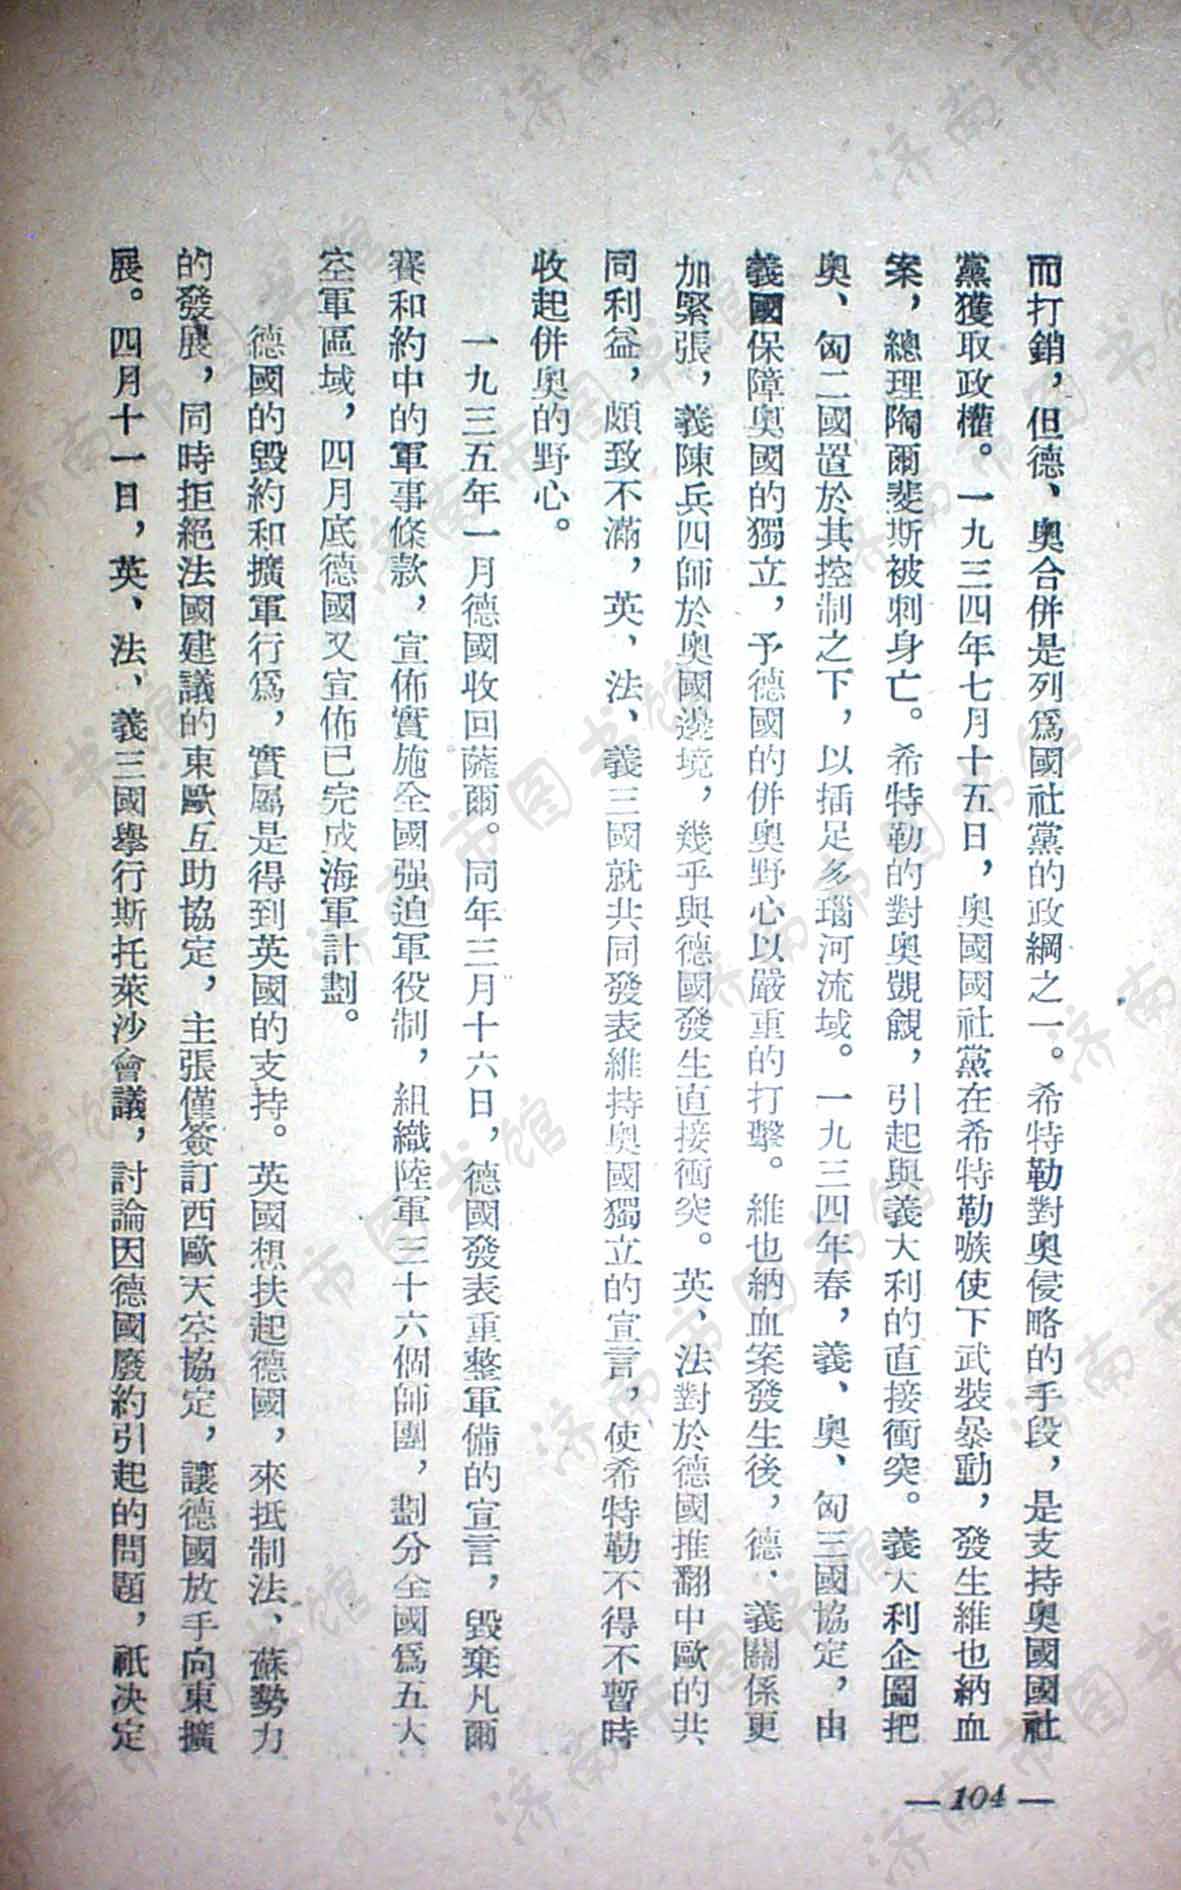 而打銷，但德、奧合併是列爲國社黨的政綱之一。希特勒對奧侵略的手段，是支持奧國國社
黨獲取政權。一九三四年七月十五日，奧國國社黨在希特勒嗾使下武裝暴動，發生維也納血
案，總理陶爾斐斯被刺身亡。希特勒的對奧覬覦，引起與義大利的直接衝突。義大利企圖把
奧、匈二國置於其控制之下，以插足多瑙河流域。一九三四年春，義、奧、匈三國協定，由
義國保障奧國的獨立，予德國的併奧野心以嚴重的打擊。維也納血案發生後，德、義關係更
加緊張，義陳兵四師於奧國邊境，幾乎與德國發生直接衝突。英、法對於德國推翻中歐的共
同利益，頗致不滿，英、法、義三國就共同發表維持奧國獨立的宣言，使希特勒不得不暫時
收起併奧的野心。
一九三五年一月德國收回薩爾。同年三月十六日，德國發表重整軍備的宣言，毀棄凡爾
賽和約中的軍事條款，宣佈實施全國强迫軍役制，組織陸軍三十六個師團，劃分全國爲五大
空軍區域，四月底德國又宣佈已完成海軍計劃。
德國的毀約和擴軍行爲，實屬是得到英國的支持。英國想扶起德國，來抵制法、蘇勢力
的發展，同時拒絕法國建議的東歐互助協定，主張僅簽訂西歐天空協定，讓德國放手向東擴
展。四月十一日，英、法、義三國舉行斯托萊沙會議，討論因德國廢約引起的問題，祇決定
— 104 —
济南市图书馆